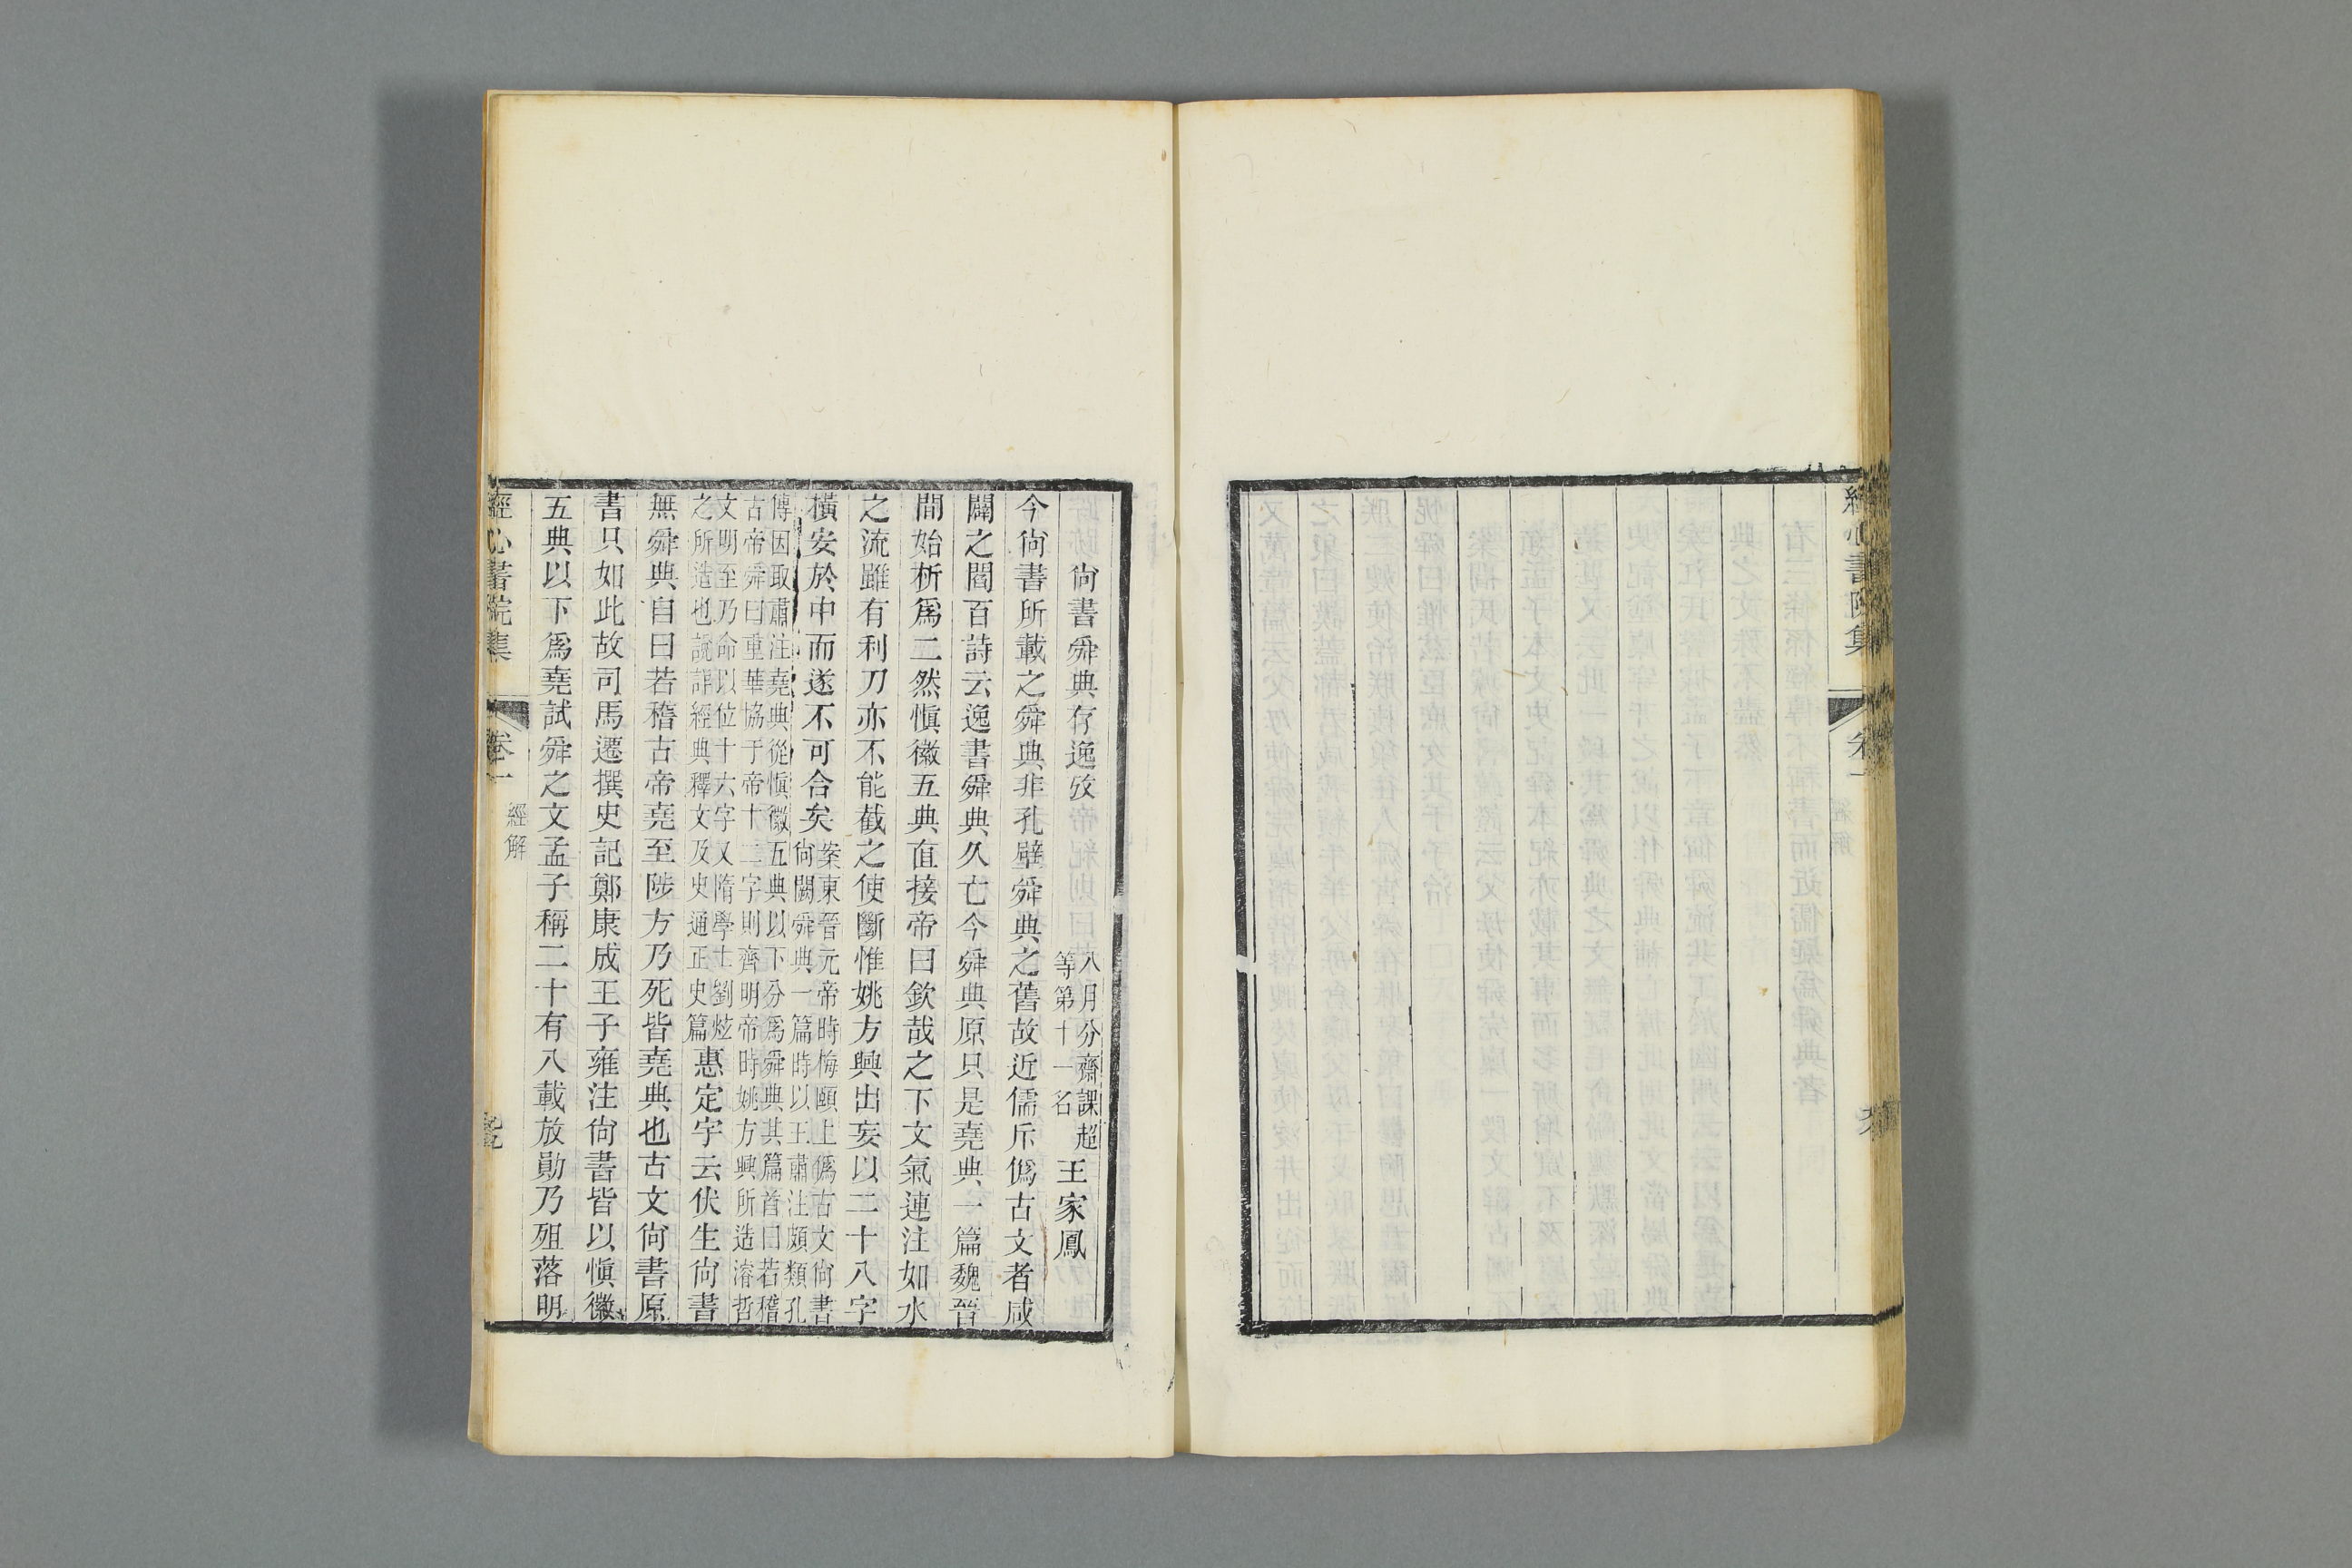 經心書院集
卷一
尙書舜典存逸攷
八月分齋課超
等第十一名
王家鳳
今尙書所載之舜典非孔壁舜典之舊故近儒斥僞古文者咸
闢之閻百詩云逸書舜典久亡今舜典原只是堯典一篇魏晉
間始析爲二然愼徽五典直接帝曰欽哉之下文氣連注如水
之流雖有利刀亦不能截之使斷惟姚方興出妄以二十八字
橫安於中而遂不可合矣
案東晉元帝時梅頤上僞古文尙書
尙闕舜典一篇時以王肅注頗類孔
傳因取肅注堯典從愼徽五典以下分爲舜典其篇首曰若稽
古帝舜曰重華協于帝十二字則齊明帝時姚方興所造濬哲
文明至乃命以位十六字又隋學士劉炫
之所造也說詳經典釋文及史通正史篇
惠定宇云伏生尙書
無舜典自曰若稽古帝堯至陟方乃死皆堯典也古文尙書原
書只如此故司馬遷撰史記鄭康成王子雍注尙書皆以愼徽
五典以下爲堯試舜之文孟子稱二十有八載放勛乃殂落明
經心書院集
卷一
經解